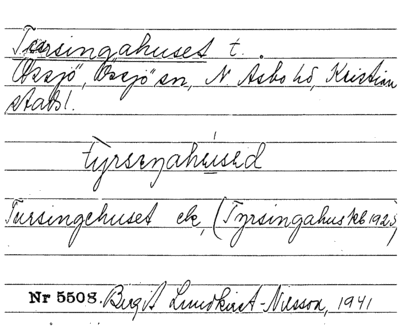 Tursingahuset t.
Oxsjö", Össjö" sn, N Asbo hd, Kristian
stads l.
tyrsenahused
Tursingehuset ek, (Tyrsingahus kb 1925)
Nr 5508. Birgit Lundkvist-Nilsson, 1941